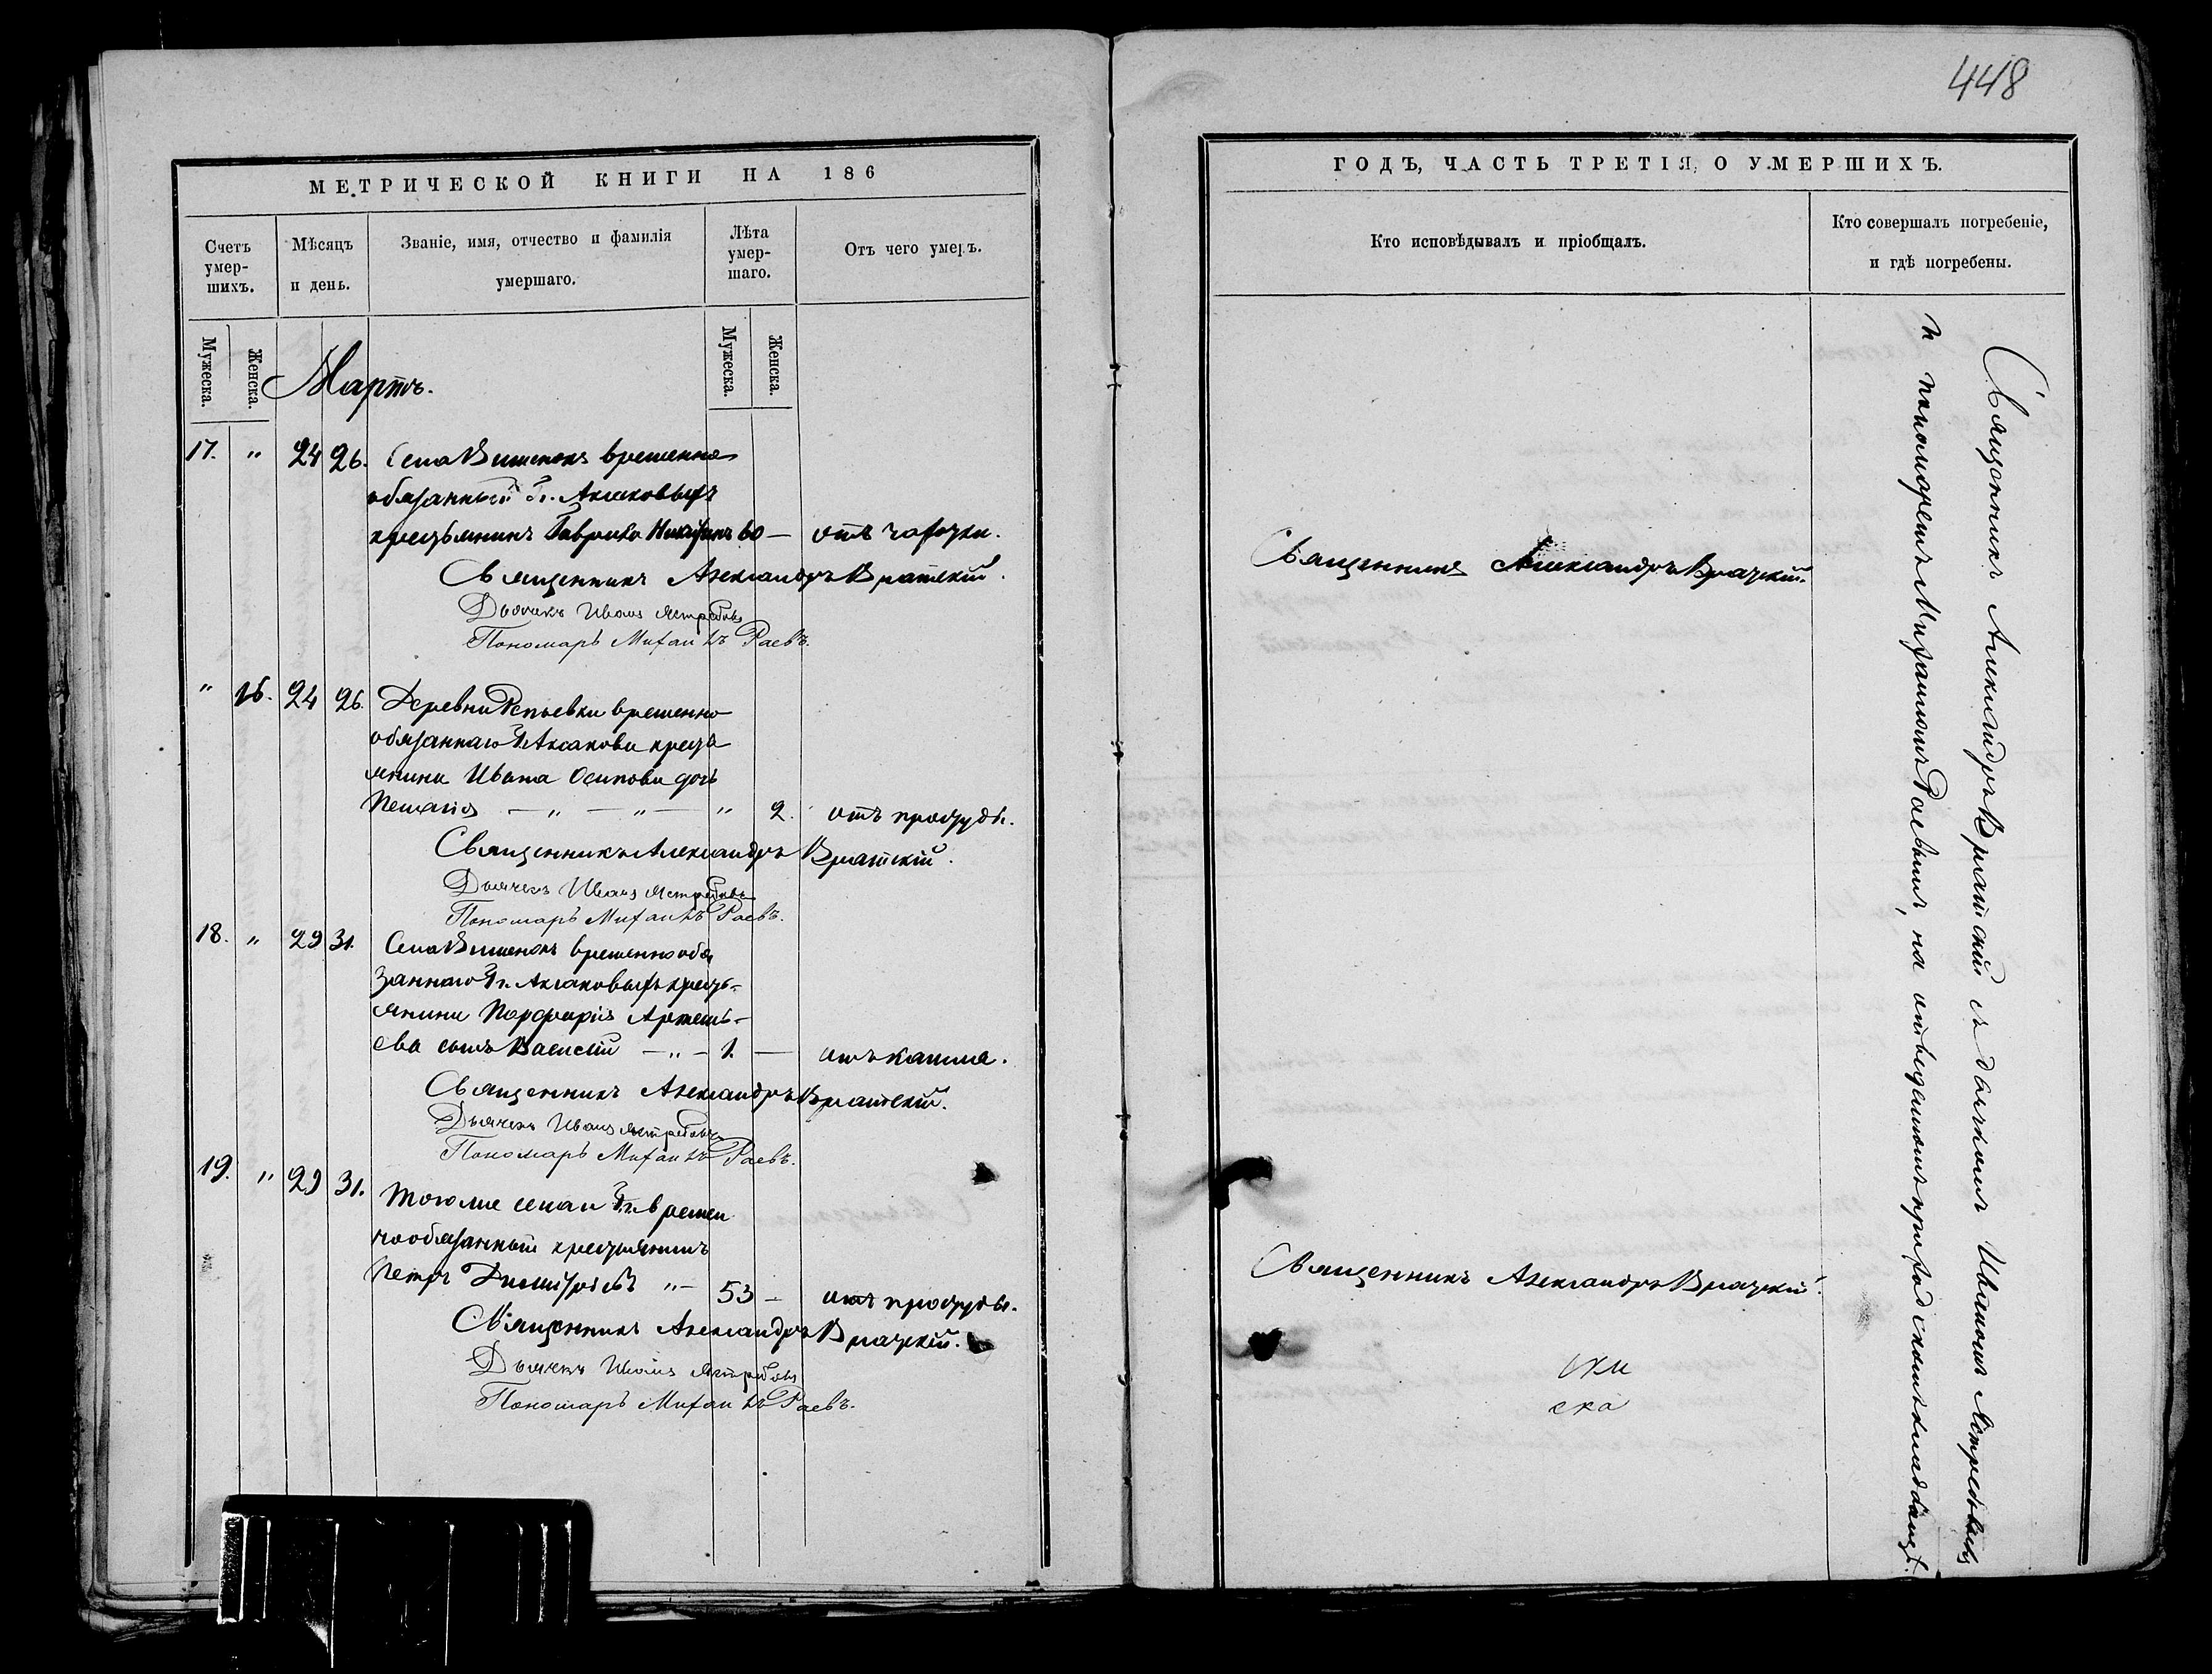 448
МЕТРИЧЕСКОЙ КНИГИ НА 186
Счетъ умер-шихъ.
Мѣсяцъ и день.
Званіе, имя, отчество и фамилія умершаго.
Лѣта умер-шаго.
Отъ чего умеръ.
Мужеска.
Женска.
Мужеска.
Женска.
Мартъ.
17. " 24 26. Села Вишенокъ временно
обязанный Гг. Аксаковыхъ
крестьянинъ Гаврила Никитинъ 60 — отъ чахотки.
Священникъ Александръ Вратскій.
Дьячекъ Иванъ Ястребовъ
Пономарь Михаилъ Раевъ.
" 16. 24 26. Деревни Репьевки временно
обязаннаго Г. Аксакова кресть
янина Ивана Осипова дочь
Пелагія — " — " — " 2. отъ простуды.
Священникъ Александръ Вратскій.
Дьячекъ Иванъ Ястребовъ
Пономарь Михаилъ Раевъ.
18. " 29 31. Села Вишенокъ временнообя
заннаго Гг. Аксаковыхъ кресть-
янина Порфирія Артемь-
ева сынъ Василій — " — 1. — отъ кашля.
Священникъ Александръ Вратскій.
Дьячекъ Иванъ Ястребовъ
Пономарь Михаилъ Раевъ.
19. " 29 31. Того же села и Гг. времен
нообязанный крестьянинъ
Петръ Димитріевъ " — 53 — отъ простуды.
Священникъ Александръ Вратскій.
Дьячекъ Иванъ Ястребовъ
Пономарь Михаилъ Раевъ.
ГОДЪ, ЧАСТЬ ТРЕТІЯ, О УМЕРШИХЪ.
Кто исповѣдывалъ и пріобщалъ.
Кто совершалъ погребеніе, и гдѣ погребены.
Священникъ Александръ Вратскій.
Священникъ Александръ Вратскій.
ска
Священникъ Александръ Вратскій съ дьячкомъ Иваномъ Ястребовымъ
и пономаремъ Михаиломъ Раевымъ, на отведенномъ приходскомъ кладбищѣ.